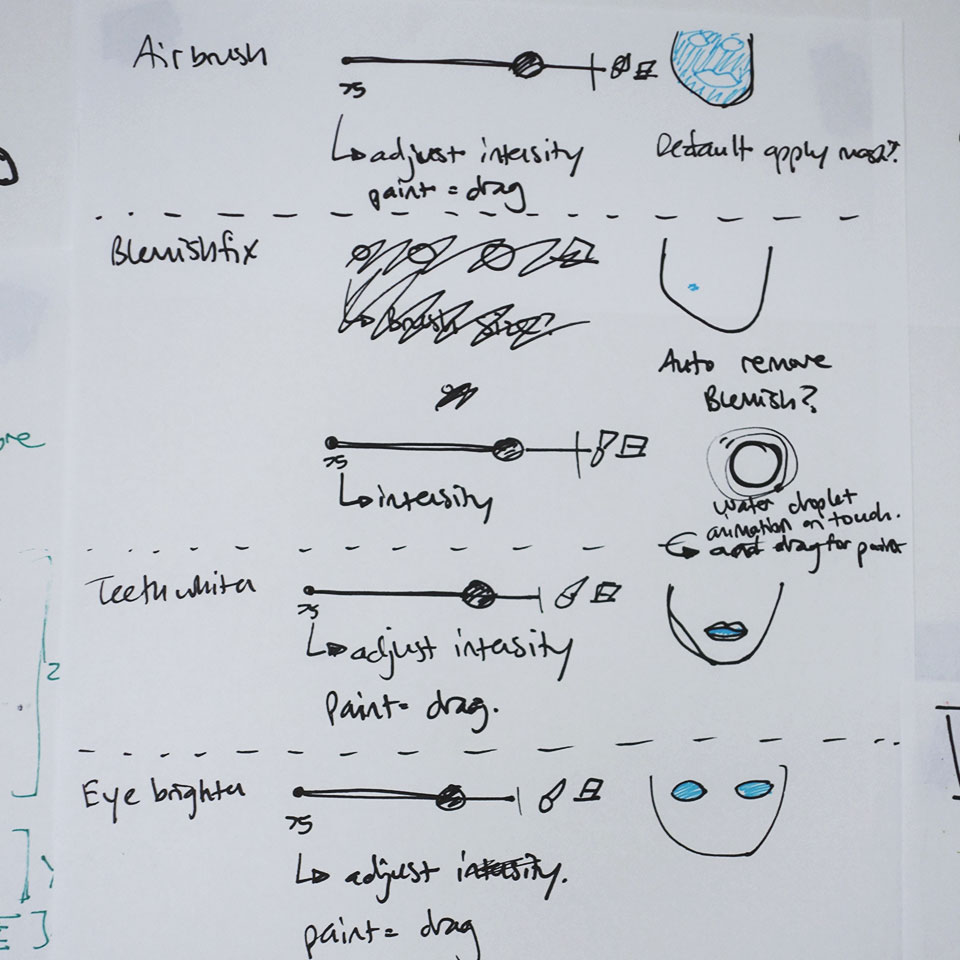 Airbrush
75
adjust intensity
paint = drag
Default apply mask?
Blemishfix
Brush size?
Auto remove
Blemish?
75
intensity
water droplet
animation on touch.
and drag for paint
Teeth whiten
75
adjust intensity
Paint = drag.
Eye brighten
75
adjust intensity.
paint = drag
ore
2
E